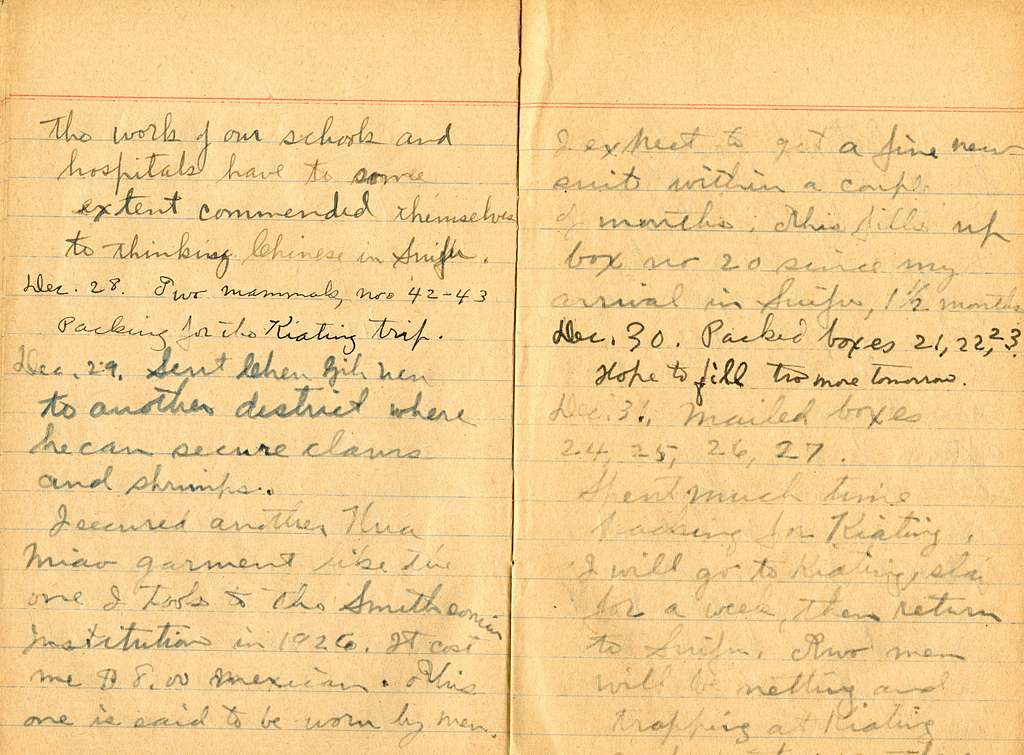 the work of our schools and
hospitals have to some
extent commended themselves
to thinking Chinese in Suifu.
Dec. 28. Two mammals, nos 42-43
Packing for the Kiating trip.
Dec. 29. Sent Chen Gih Uen
to another district where
he can secure clams
and shrimps.
I secured another Hua
Miao garment like the
one I took to the Smithsonian
Institution in 1926. It cost
me $8.00 Mexican. This
one is said to be worn by men.
I expect to get a fine new
suit within a couple
of months. This fills up
box no 20 since my
arrival in Suifu, 1 1/2 months
Dec. 30. Packed boxes 21, 22, 23.
Hope to fill two more tomorrow.
Dec. 31. Mailed boxes
24, 25, 26, 27.
Spent much time
packing for Kiating.
I will go to Kiating, stay
for a week, then return
to Suifu. Two men
will be netting and
trapping at Kiating